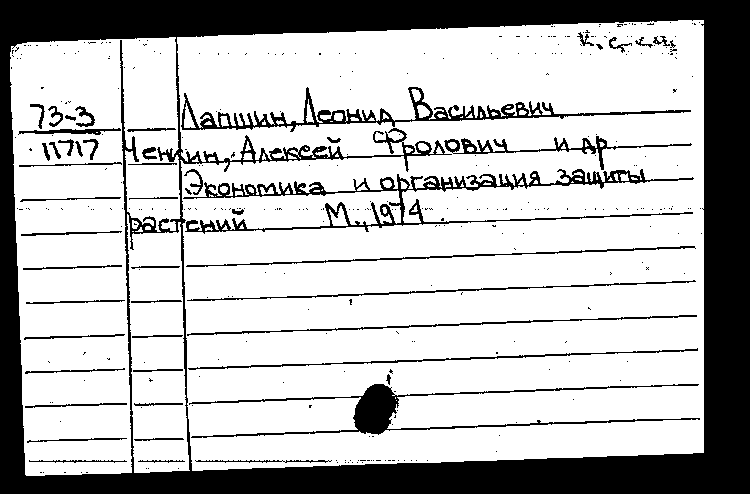 73-3 Лапшин, Леонид Васильевич.
11717 Ченкин, Алексей Фролович и др.
Экономика и организация защиты
растений. М., 1974.